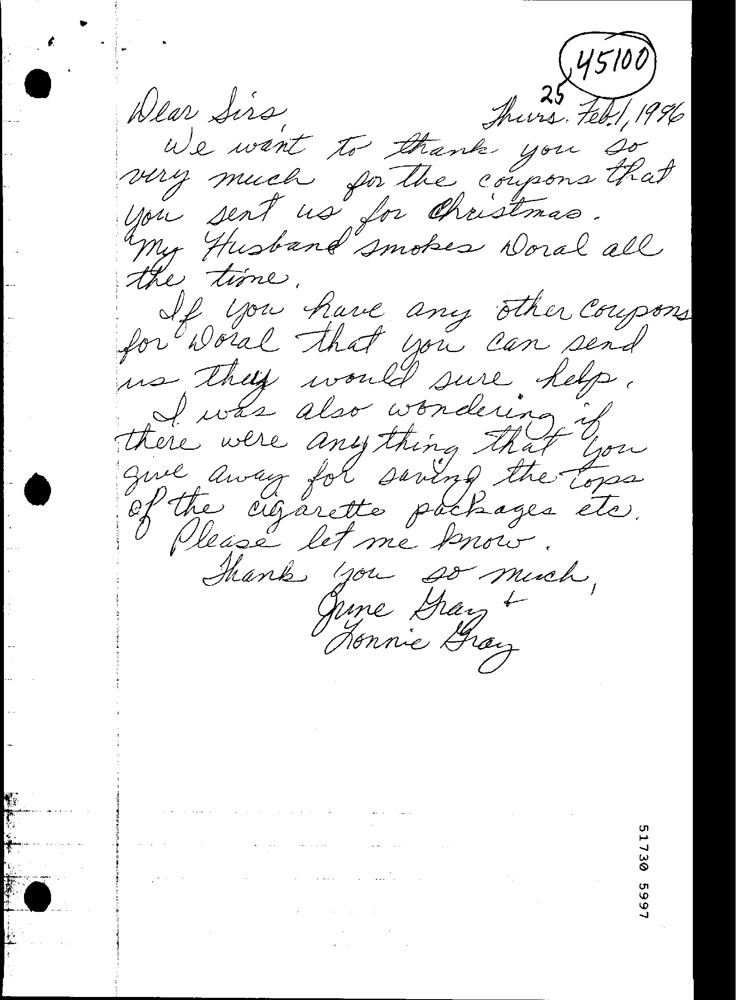 45100
25
Dear Sirs, Thurs. Feb. 1, 1996
We want to thank you so
very much for the coupons that
you sent us for Christmas.
My Husband smokes Doral all
the time.
If you have any other coupons
for Doral that you can send
us they would sure help.
I was also wondering if
there were anything that you
give away for saving the tops
of the cigarette packages etc.
Please let me know.
Thank you so much,
June Gray &
Lonnie Gray
51730 5997